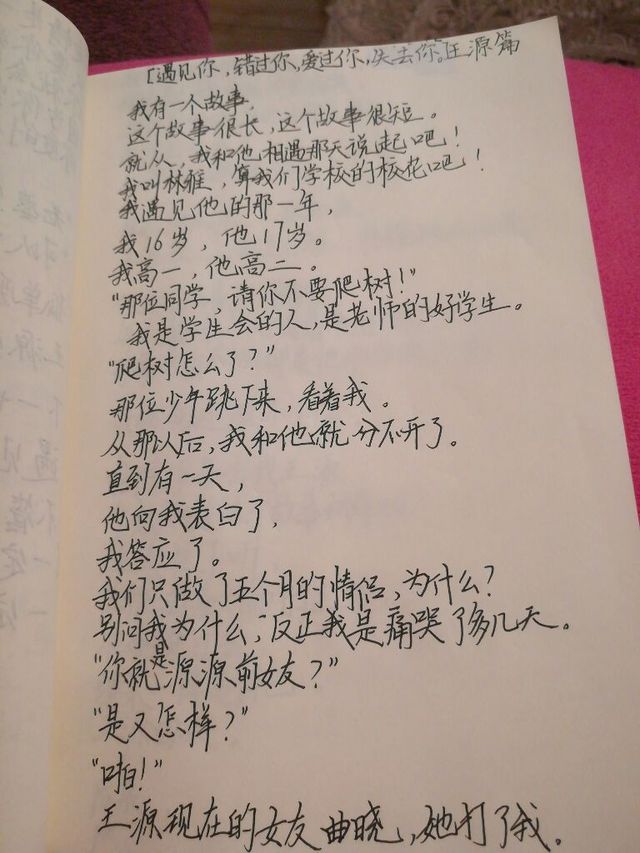 [遇见你，错过你，爱过你，失去你。王源篇
我有一个故事，
这个故事很长，这个故事很短。
就从，我和他相遇那天说起吧！
我叫林雅，算我们学校的校花吧！
我遇见他的那一年，
我16岁，他17岁。
我高一，他高二。
“那位同学，请你不要爬树！”
我是学生会的人，是老师的好学生。
“爬树怎么了？”
那位少年跳下来，看着我。
从那以后，我和他就分不开了。
直到有一天，
他向我表白了，
我答应了。
我们只做了五个月的情侣，为什么？
别问我为什么，反正我是痛哭了多几天。
“你就是源源前女友？”
“是又怎样？”
“啪！”
王源现在的女友曲晓，她打了我。